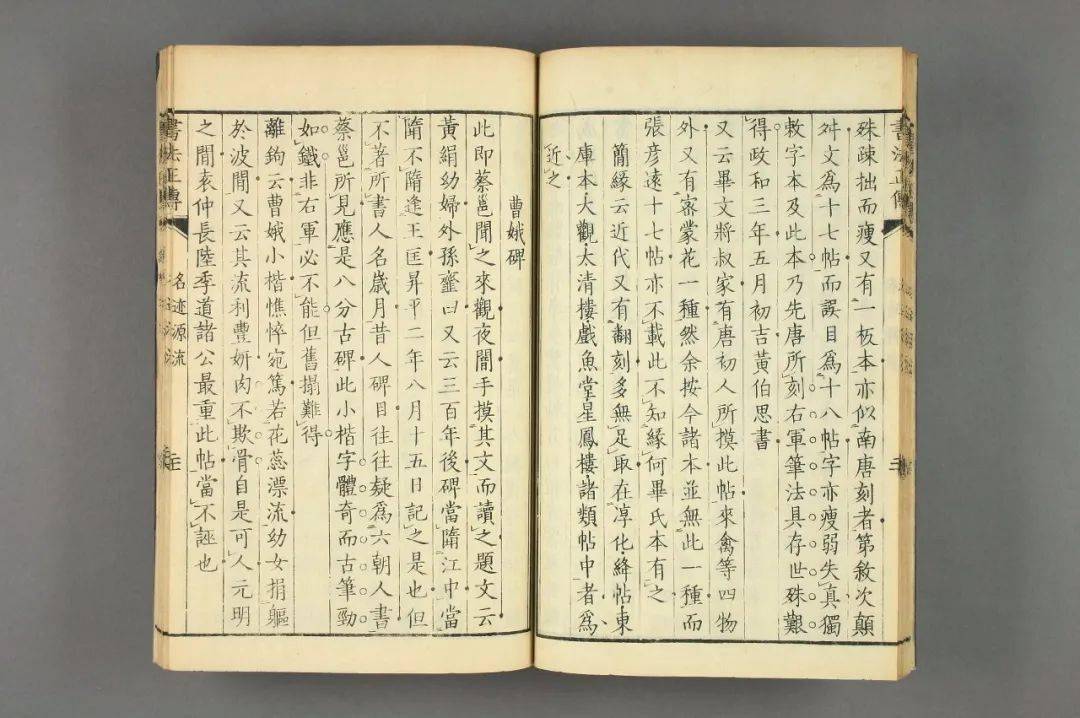 殊疎拙而瘦又有一板本亦似南唐刻者第敘次顛
舛文爲十七帖而誤目爲十八帖字亦瘦弱失真獨
敕字本及此本乃先唐所刻右軍筆法具存世殊艱
得政和三年五月初吉黃伯思書
又云畢文將叔家有唐初人所摸此帖來禽等四物
外又有密蒙花一種然余按今諸本並無此一種而
張彦遠十七帖亦不載此不知緣何畢氏本有之
簡緣云近代又有翻刻多無足取在淳化絳帖東
庫本大觀太清樓戲魚堂星鳳樓諸類帖中者爲
近之
書法正傳
曹娥碑
此即蔡邕聞之來觀夜闇手摸其文而讀之題文云
黃絹幼婦外孫虀臼又云三百年後碑當隋江中當
隋不隋逢王匡昇平二年八月十五日記之是也但
不著所書人名嵗月昔人碑目往往疑爲六朝人書
蔡邕所見應是八分古碑此小楷字體奇而古筆勁
如鐵非右軍必不能但舊搨難得
離鉤云曹娥小楷憔悴宛篤若花蕊漂流幼女捐軀
於波間又云其流利豐妍肉不欺骨自是可人元明
之間袁仲長陸季道諸公最重此帖當不誣也
書法正傳
名迹源流